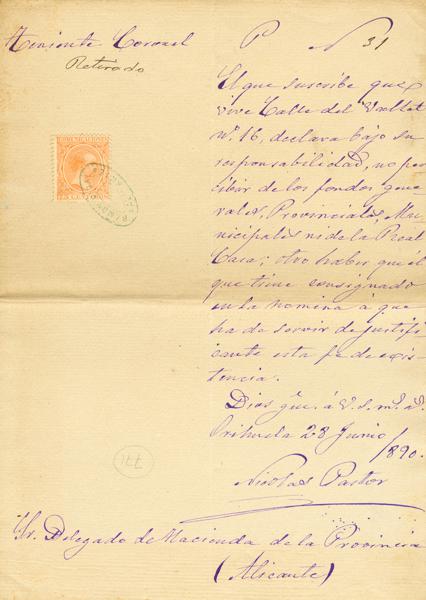 Teniente Coronel P N 31
Retirado
El que suscribe que
vive Calle del Vallet
nº 16, declara bajo su
responsabilidad, no per
cibir de los fondos gene
rales, Provinciales, Mu
nicipales ni de la Real
Casa; otro haber que el
que tiene consignado
en la nomina á que
ha de servir de justifi
cante esta fe de exis
tencia.
Dios gue. á V. S. ms. as.
Orihuela 28 Junio
/890.
Nicolas Pastor
Sr. Delegado de Hacienda de la Provincia
(Alicante)
COMUNICACIONES
771